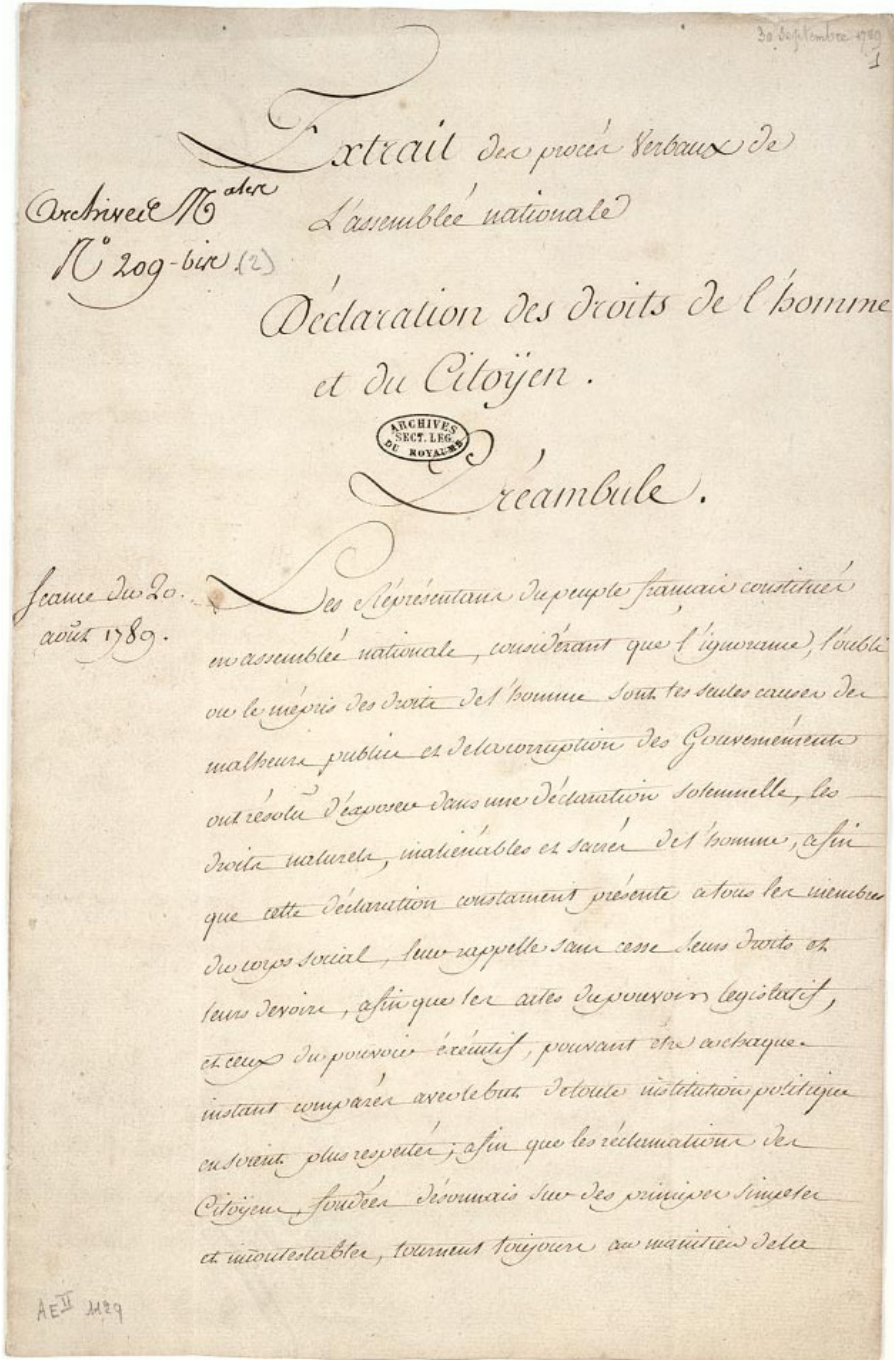 30 Septembre 1789
1
Extrait des procés Verbaux de
L'assemblée nationale
Archives N ales
N° 209-bis (2)
Déclaration des droits de l'homme
et du Citoÿen.
ARCHIVES
SECT. LEG.
DU ROYAUME
Préambule.
Seance du 20.
août 1789.
Les Réprésentans du peuple francais constitués
en assemblée nationale, considérant que l'ignorance, l'oubli
ou le mépris des droits de l'homme sont les seules causes des
malheurs publics et de la corruption des Gouvernéments
ont résolu d'exposer dans une déclaration solemnelle, les
droits naturels, inaliénables et sacrés de l'homme, afin
que cette déclaration constament présente a tous les membres
du corps social, leur rappelle sans cesse leurs droits et
leurs devoirs, afin que les actes du pouvoir legislatif,
et ceux du pouvoir éxécutif, pouvant être a chaque
instant comparés avec le but de toute institution politique
en soient plus respectés; afin que les réclamations des
Citoÿens, fondées désormais sur des principes simples
et incontestables, tournent toujours au maintien de la
AE II 1129